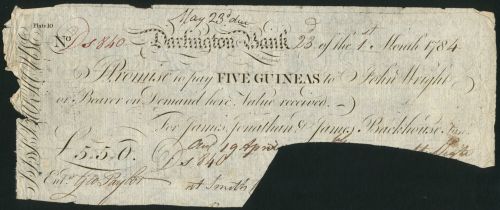 Plate 10
May 23d due
No. Ds 840 Darlington Bank 23d of the 1st Month 1784
I Promise to pay FIVE GUINEAS to John Wright
or Bearer on Demand here Value received.
For James, Jonathan & James Backhouse
£5.5.0 19 April
Ds 840
Entd. Geo Taylor
at Smith